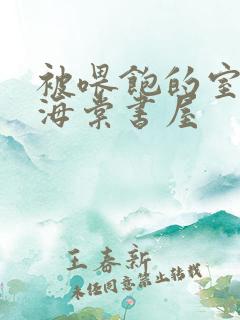 被喂飽的室
海棠书屋
王春新
未经同意禁止转载